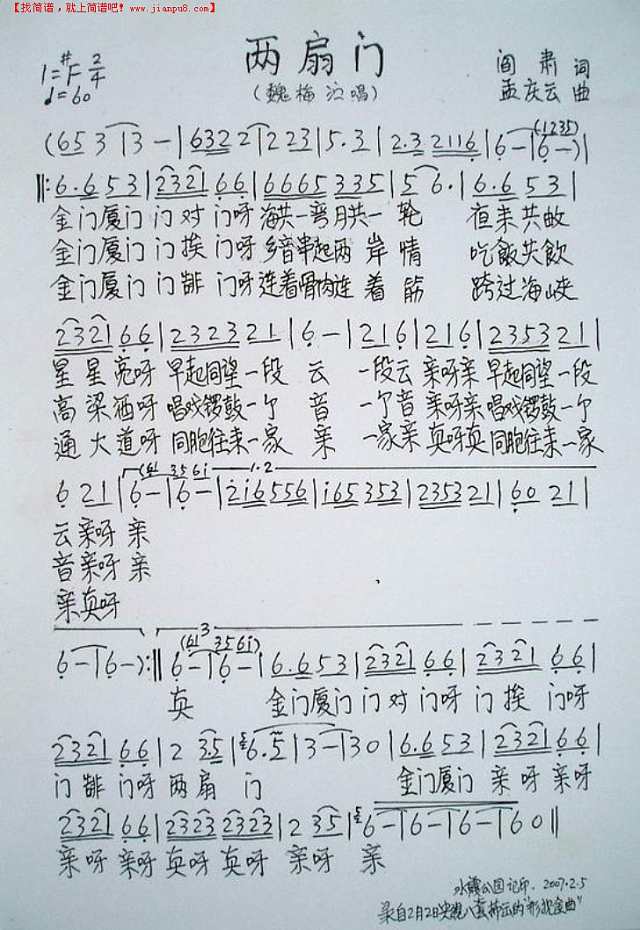 【找简谱，就上简谱吧! www.jianpu8.com】
两扇门
1=#F 2/4
♩=60
(魏梅 演唱)
阎肃 词
孟庆云 曲
(65 3 1 3 - | 6322 2 1 223 | 5·3 | 2·3 2116 | 6 - | 6 -) |
(1235)
‖: 6·6 53 | 2321 66 | 6665 335 | 5 6· | 6·6 53 |
金门厦门 门对 门呀 海共一弯月共一 轮 夜来共敬
金门厦门 门挨 门呀 乡音串起两 岸 情 吃飯共飲
金门厦门 门 门呀 连着骨肉连 着 筋 跨过海峡
2321 66 | 2323 21 | 6 - | 21 6 | 21 6 | 2353 21 |
星 星亮呀 早起同望一段 云 一段云 亲呀亲 早起同望一段
高 梁酒呀 唱戏锣鼓一个 音 一个音 亲呀亲 唱戏锣鼓一个
通 大道呀 同胞往来一家 亲 一家亲 真呀真 同胞往来一家
(61 3561 1·2
6 21 | 6 - | 6 - | 2i6 556 | i65 353 | 2353 21 | 60 21 |
云亲呀 亲
音亲呀 亲
亲真呀
3
(61 3561)
6 - | 6 -) :‖ 6 - | 6 - | 6·6 53 | 2321 66 | 2321 66 |
真 金门厦门 门对 门呀 门挨 门呀
2321 66 | 2 35 | 6·5 | 3 - | 3 0 | 6·6 53 | 2321 66 |
门 门呀 两扇 门 金门厦门 亲呀 亲呀
2321 66 | 2323 2323 | 2 35 | 6 - | 6 - | 6 - | 6 0 ‖
亲呀 亲呀 真呀 真呀 亲呀 亲
公园记印. 2007.2.5
录自2月2日央视八套